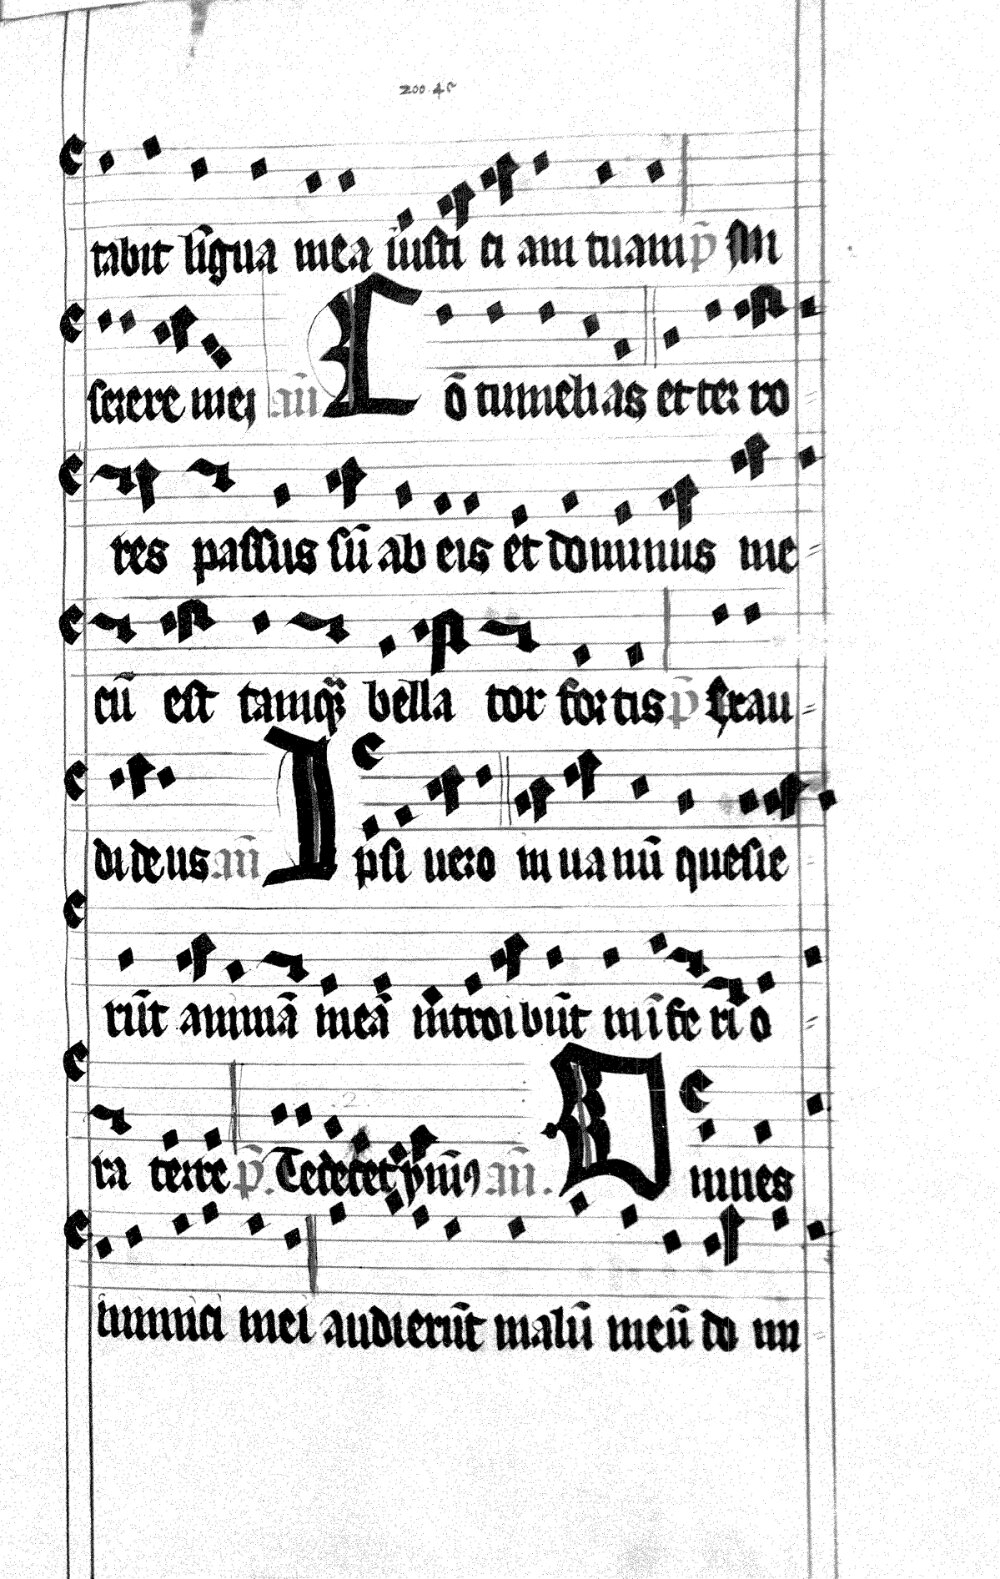 200.45
tabit li̅gua mea iusti ci am tuam p̅ Mi
serere mei an̅ Co̅ tumelias et ter ro
res passus su̅ ab eis et dominus me=
cu̅ est tamqua̅ bella tor fortis p̅ Exau=
di deus an̅ Ipsi uero in uanu̅ quesie
ru̅t anima̅ mea̅ introibu̅t in i̅fe ri o
ra terre p̅. Te decet ymn̅9 an̅. Omnes
inimici mei audieru̅t malu̅ meu̅ do mi